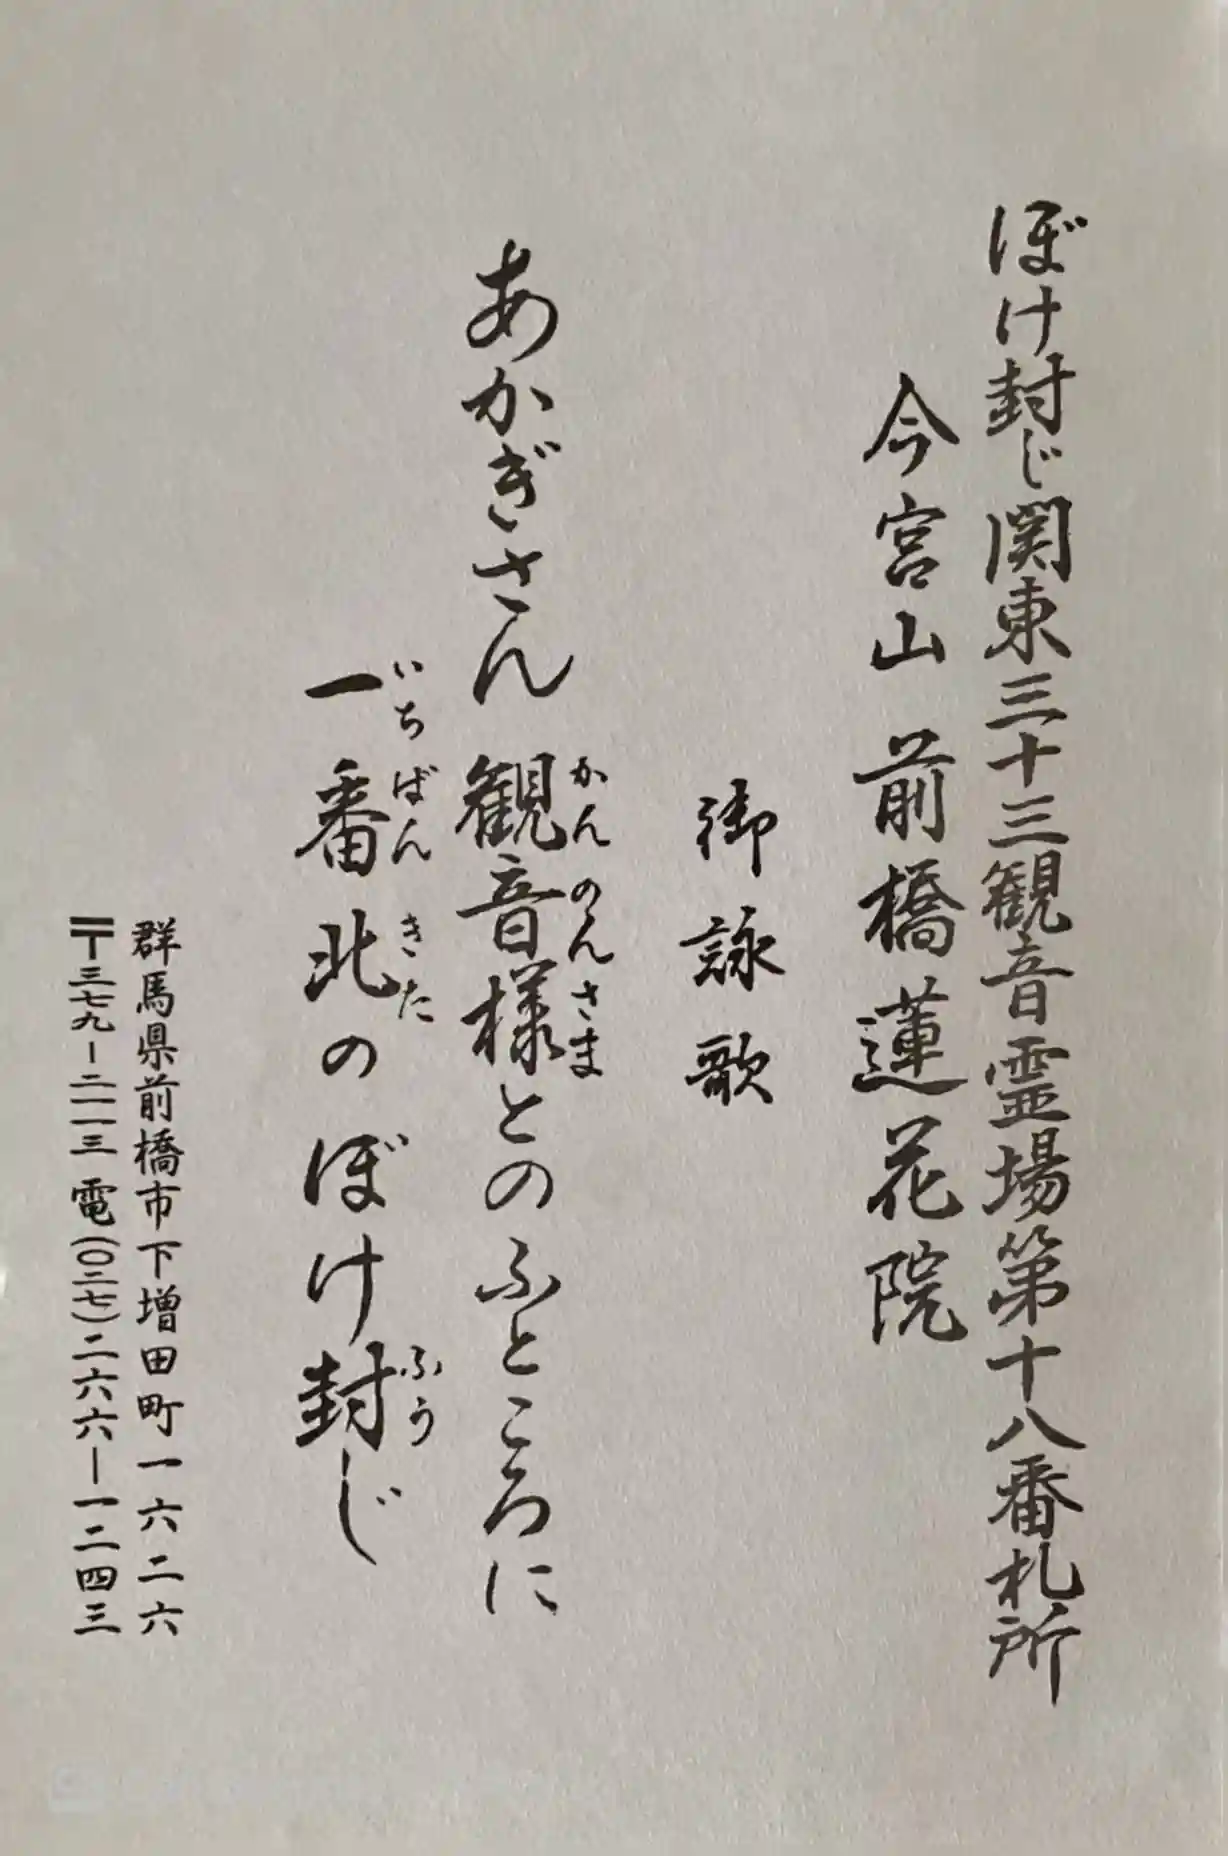 ぼけ封じ関東三十三観音霊場第十八番札所
今宮山 前橋蓮花院
御詠歌
あかぎさん観音様とのふところに
かんのんさま
一番北のぼけ封じ
いちばん きた ふう
群馬県前橋市下増田町一六二六
〒三七九ー二一一三 電(〇二七)二六六ー一二四三